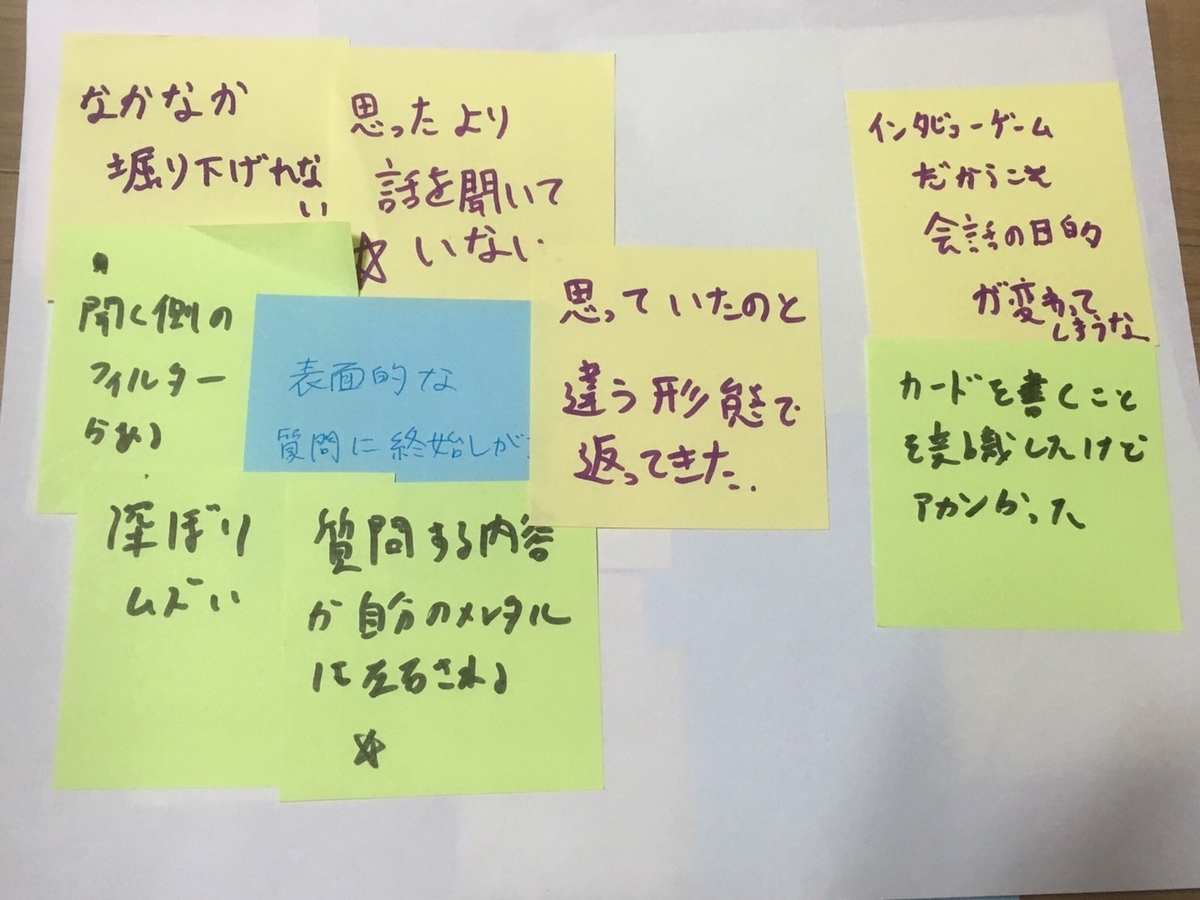 なかなか
掘り下げれな
い
思ったより
話を聞いて
☆いない
インタビューゲーム
だからこそ
会話の目的
が変わって
しまうな
聞く側の
フィルター
らめる
表面的な
質問に終始しが
思っていたのと
違う形態で
返ってきた..
カードを書くこと
を意識したけど
アカンかった
深ぼり
ムズい
質問する内容
が自分のメンタル
に左右される
☆